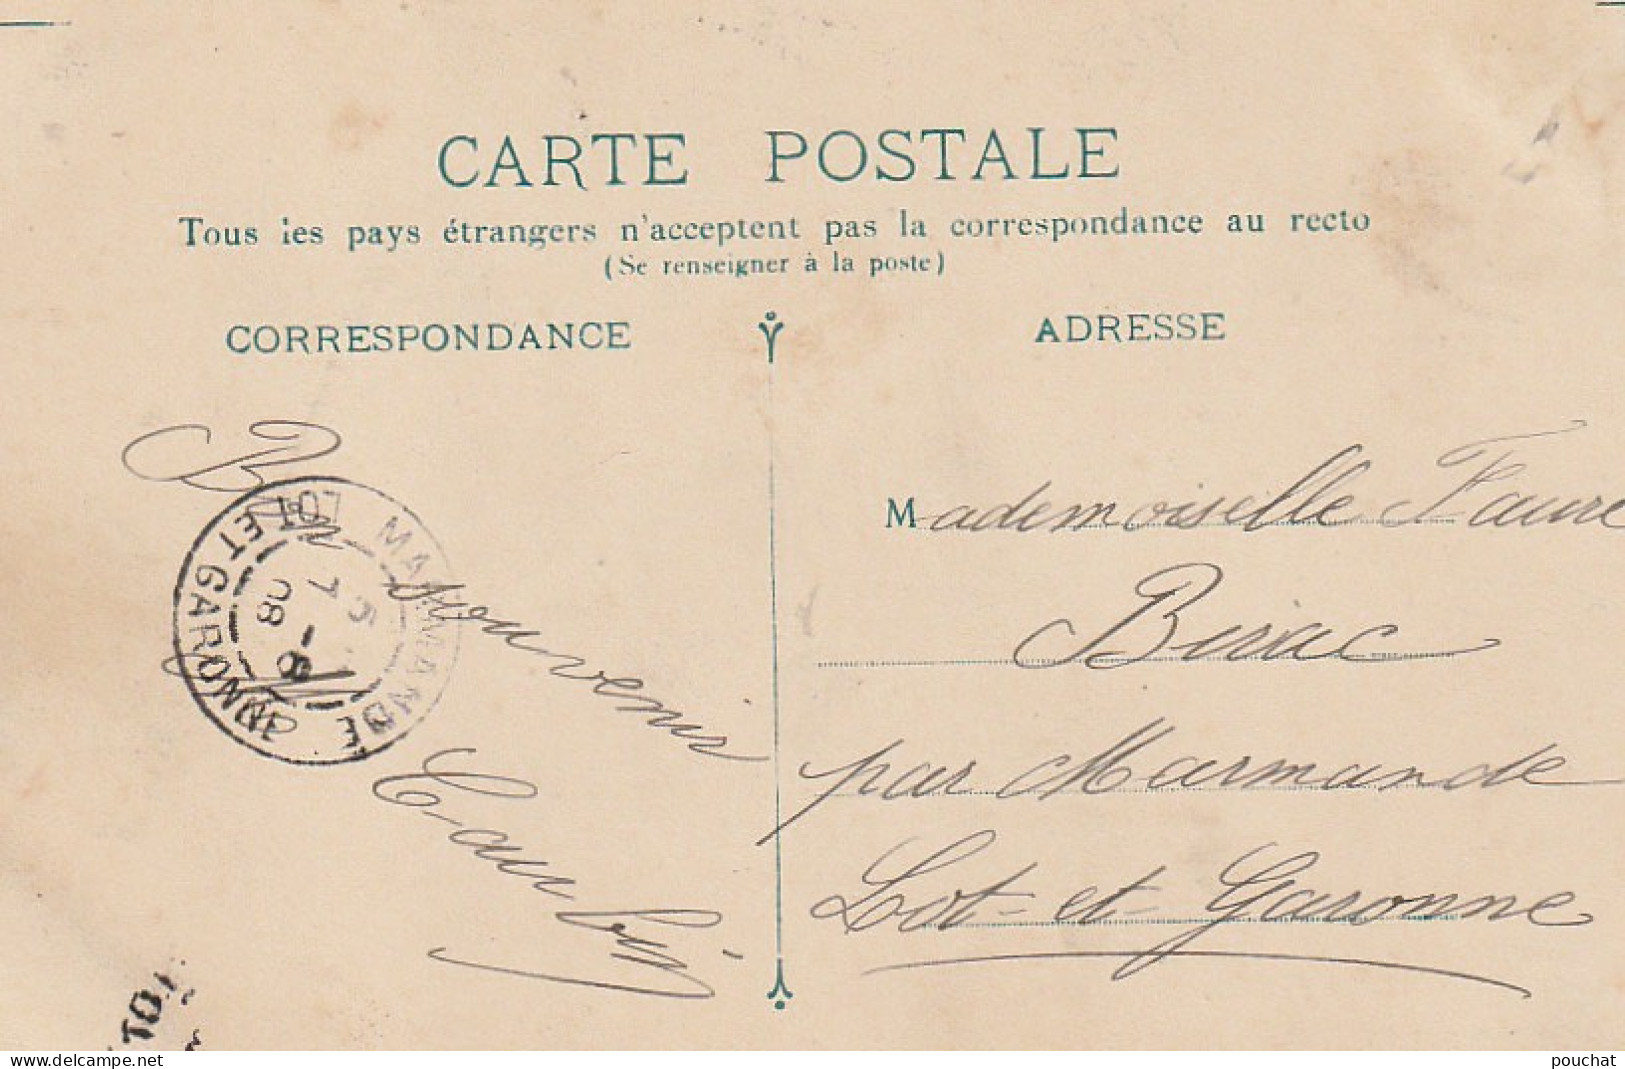 CARTE POSTALE
Tous les pays étrangers n'acceptent pas la correspondance au recto
(Se renseigner à la poste)
CORRESPONDANCE
ADRESSE
Bon
souvenir
MARMANDE
LOT ET GARONNE
08
Mademoiselle Faure
Birac
par Marmande
Lot-et-Garonne
www.delcampe.net
pouchat